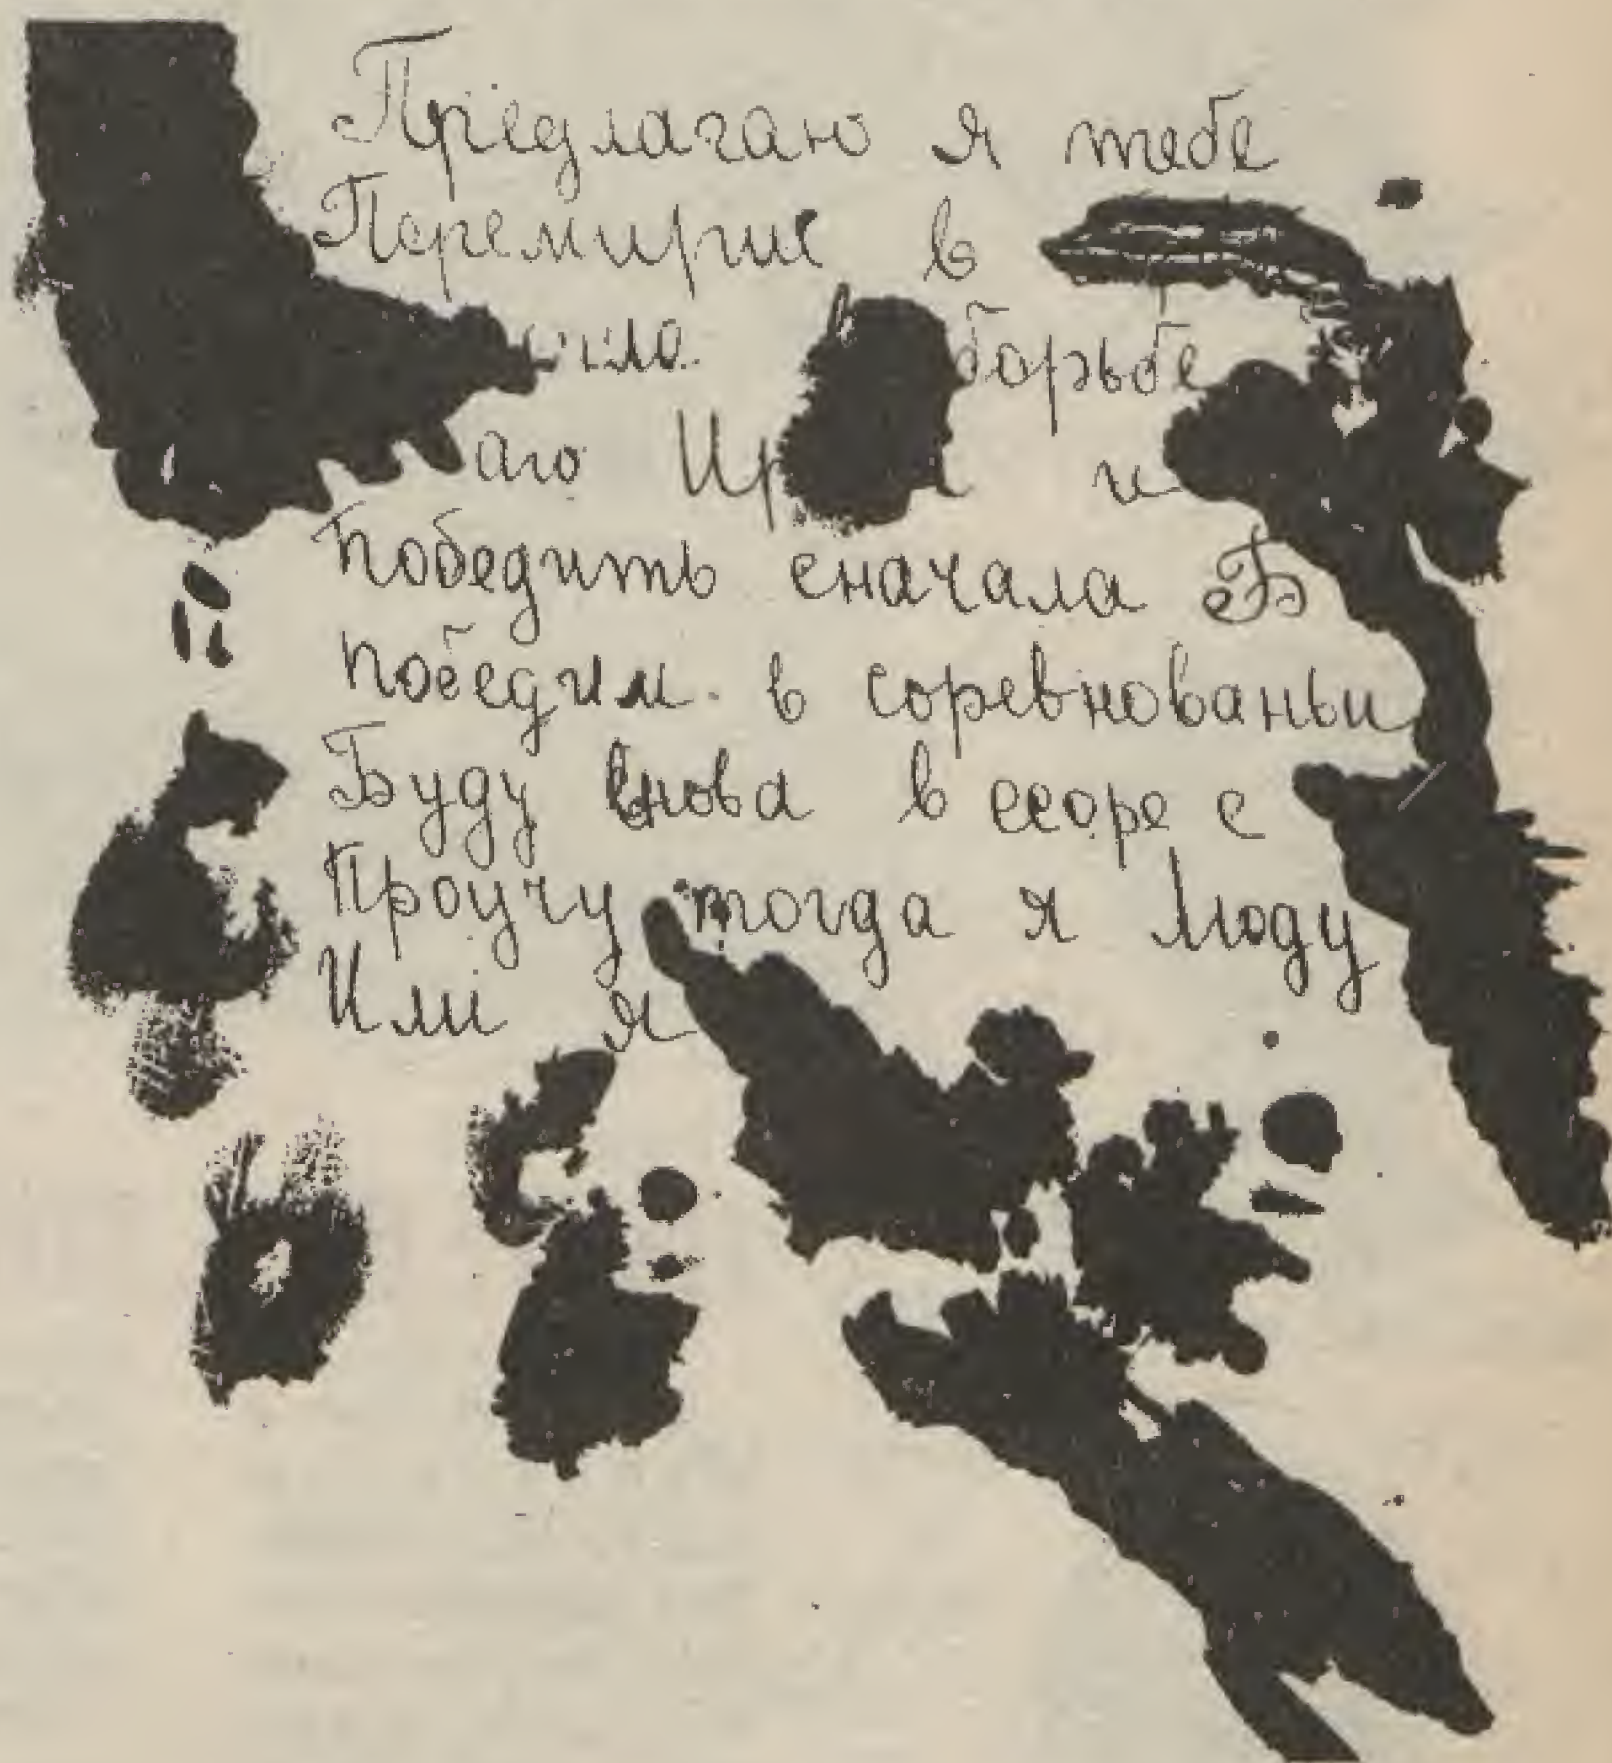 Предлагаю я тебе
Перемирие в
борьбе
и
Победить сначала Б
победим в соревнованьи
Буду внова в ссоре с
Проучу тогда я Люду
Или я